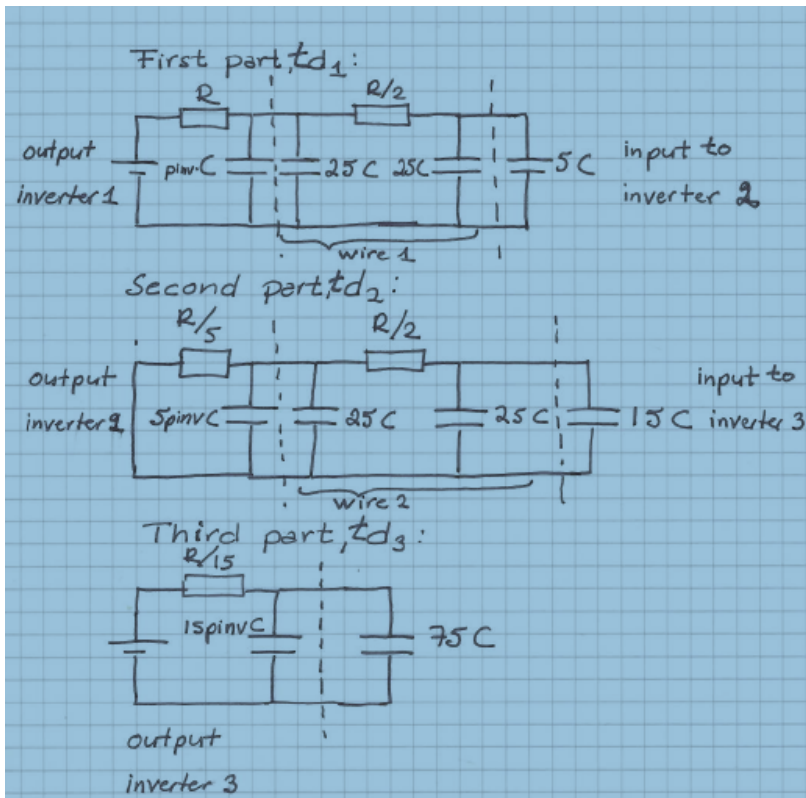 First part, td1:
R
R/2
output
inverter 1
pinv.C
25C
25C
5C
input to
inverter 2
wire 1
Second part, td2:
R/5
R/2
output
inverter 2
5pinvC
25C
25C
15C
input to
inverter 3
wire 2
Third part, td3:
R/15
15pinvC
75C
output
inverter 3